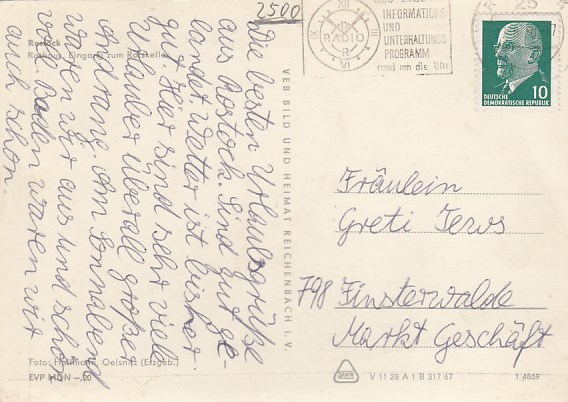 2500
Die besten Urlaubsgrüße
aus Rostock. Sind gut ge-
landet. Wetter ist bisher
gut. Hier sind sehr viele
Urlauber überall großer
Andrang. Am Sonnabend
waren wir aus und schön
von Baden waren wir
auch schon.
Rostock
Rathaus, Eingang zum Ratskeller
Foto: Hoffmann, Oelsnitz (Erzgeb.)
EVP MDN –,20
VEB BILD UND HEIMAT REICHENBACH I. V.
XII
III
VI
IX
RADIO
R
INFORMATIONS
UND
UNTERHALTUNGS
PROGRAMM
rund um die Uhr
25
DEUTSCHE
DEMOKRATISCHE REPUBLIK
10
Fräulein
Greti Jews
798 Finsterwalde
Markt Geschäft
V 11 28 A 1 B 317 67
1 4859